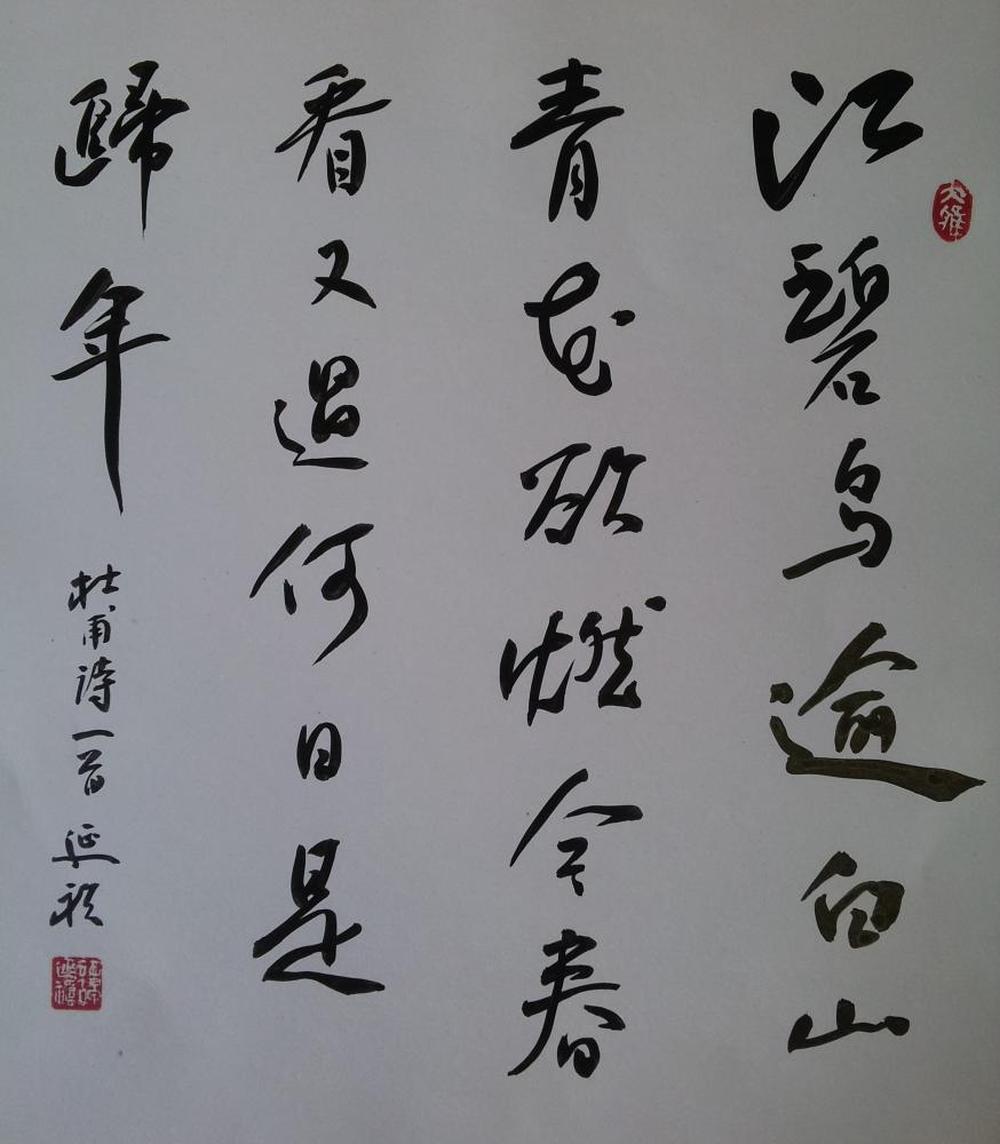 江碧鸟逾白山
青花欲燃今春
看又過何日是
歸年
杜甫诗一首 延
大雅